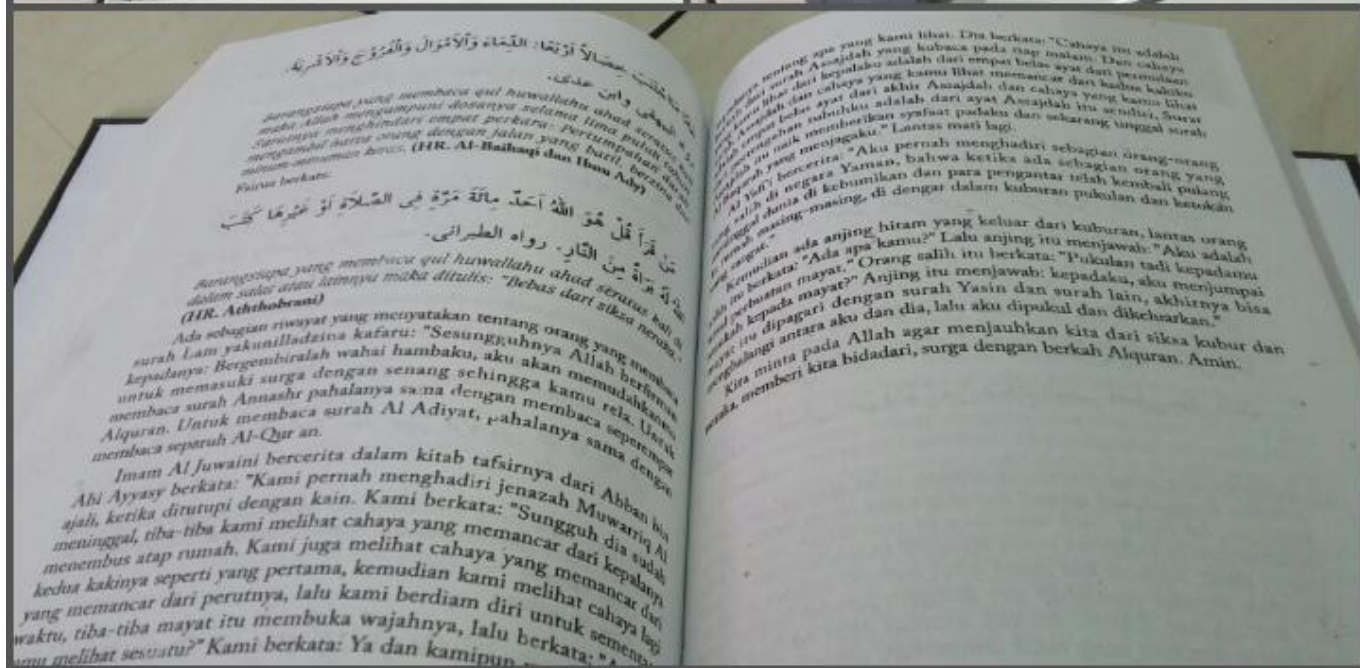 خِصَالًا اَرْبَعًا: الدِّمَاءَ وَالْاَمْوَالَ وَالْفُرُوْجَ وَالْاَشْرِبَةَ.
البيهقى وابن عدى.
Barangsiapa yang membaca qul huwallahu ahad seratus kali
maka Allah mengampuni dosanya selama lima puluh tahun
menghindari empat perkara: Pertumpahan darah,
mengambil harta orang dengan jalan yang batil, berzina dan
minum-minuman keras. (HR. Al-Baihaqi dan Ibnu Ady)
berkata:
مَنْ قَرَأَ قُلْ هُوَ اللهُ اَحَدٌ مِائَةَ مَرَّةٍ فِى الصَّلَاةِ اَوْ غَيْرِهَا كَتَبَ
اللهُ لَهُ بَرَاءَةً مِنَ النَّارِ. رواه الطبرانى.
Barangsiapa yang membaca qul huwallahu ahad seratus kali di
dalam salat atau lainnya maka ditulis: "Bebas dari siksa neraka."
(HR. Aththobrani)
Ada sebagian riwayat yang menyatakan tentang orang yang membaca
surah Lam yakunilladzina kafaru: "Sesungguhnya Allah berfirman
kepadanya: Bergembiralah wahai hambaku, aku akan memudahkanmu
untuk memasuki surga dengan senang sehingga kamu rela. Untuk
membaca surah Annashr pahalanya sama dengan membaca seperempat
Alquran. Untuk membaca surah Al Adiyat, pahalanya sama dengan
membaca separuh Al-Qur an.
Imam Al Juwaini bercerita dalam kitab tafsirnya dari Abban bin
Abi Ayyasy berkata: "Kami pernah menghadiri jenazah Muwarriq Al
ajali, ketika ditutupi dengan kain. Kami berkata: "Sungguh dia sudah
meninggal, tiba-tiba kami melihat cahaya yang memancar dari kepalanya
menembus atap rumah. Kami juga melihat cahaya yang memancar dari
kedua kakinya seperti yang pertama, kemudian kami melihat cahaya lagi
yang memancar dari perutnya, lalu kami berdiam diri untuk sementara
waktu, tiba-tiba mayat itu membuka wajahnya, lalu berkata:
melihat sesuatu?" Kami berkata: Ya dan kamipun
tentang apa yang kami lihat. Dia berkata: "Cahaya itu adalah
dari surah Assajdah yang kubaca pada tiap malam. Dan cahaya
lihat dari kepalaku adalah dari empat belas ayat dari permulaan
Assajdah dan cahaya yang kamu lihat memancar dari kedua kakiku
empat belas ayat dari akhir Assajdah dan cahaya yang kamu lihat
tubuhku adalah dari ayat Assajdah itu sendiri, Surat
itu naik memberikan syafaat padaku dan sekarang tinggal surah
yang menjagaku." Lantas mati lagi.
Al Yafi'i bercerita: "Aku pernah menghadiri sebagian orang-orang
salih di negara Yaman, bahwa ketika ada sebagian orang yang
dunia di kebumikan dan para pengantar telah kembali pulang
masing-masing, di dengar dalam kuburan pukulan dan ketukan
sangat."
Kemudian ada anjing hitam yang keluar dari kuburan, lantas orang
salih itu berkata: "Ada apa kamu?" Lalu anjing itu menjawab: "Aku adalah
perbuatan mayat." Orang salih itu berkata: "Pukulan tadi kepadamu
kepada mayat?" Anjing itu menjawab: kepadaku, aku menjumpai
mayat itu dipagari dengan surah Yasin dan surah lain, akhirnya bisa
menghalangi antara aku dan dia, lalu aku dipukul dan dikeluarkan."
Kita minta pada Allah agar menjauhkan kita dari siksa kubur dan
memberi kita bidadari, surga dengan berkah Alquran. Amin.